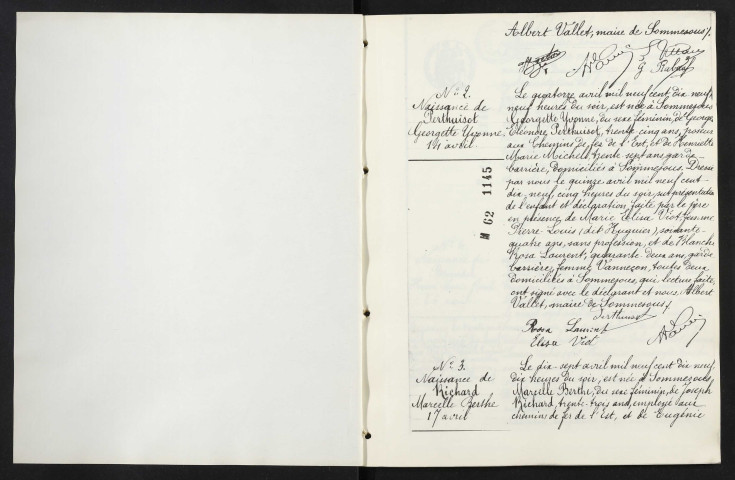 Albert Vallet, maire de Sommesous /.
G Rabat
Nº 2.
Naissance de
Perthuisot
Georgette Yvonne
14 avril
Le quatorze avril mil neuf cent dix neuf,
neuf heures du soir, est née à Sommesous
Georgette Yvonne, du sexe féminin, de Georges
Eléonore Perthuisot, trente cinq ans, poseur
aux Chemins de fer de l'Est, et de Henriette
Marie Michel, trente sept ans, garde-
barrière, domiciliés à Sommesous. Dressé
par nous le quinze avril mil neuf cent-
dix-neuf, cinq heures du soir, sur présentation
de l'enfant et déclaration faite par le père
en présence de Marie Elisa Viot, femme
Pierre Louis (dit Huguier), soixante-
quatre ans, sans profession, et de Blanche
Rosa Laurent, quarante-deux ans, garde
barrière, femme Vanneçon, toutes deux
domiciliées à Sommesous, qui, lecture faite,
ont signé avec le déclarant et nous, Albert
Vallet, maire de Sommesous /.
Perthuisot
Rosa Laurent
Elisa Viot
M 62 1145
Nº 3.
Naissance de
Richard
Marcelle Berthe
17 avril
Le dix-sept avril mil neuf cent dix neuf,
dix heures du soir, est née à Sommesous,
Marcelle Berthe, du sexe féminin, de Joseph
Richard, trente-trois ans, employé aux
chemins de fer de l'Est, et de Eugénie